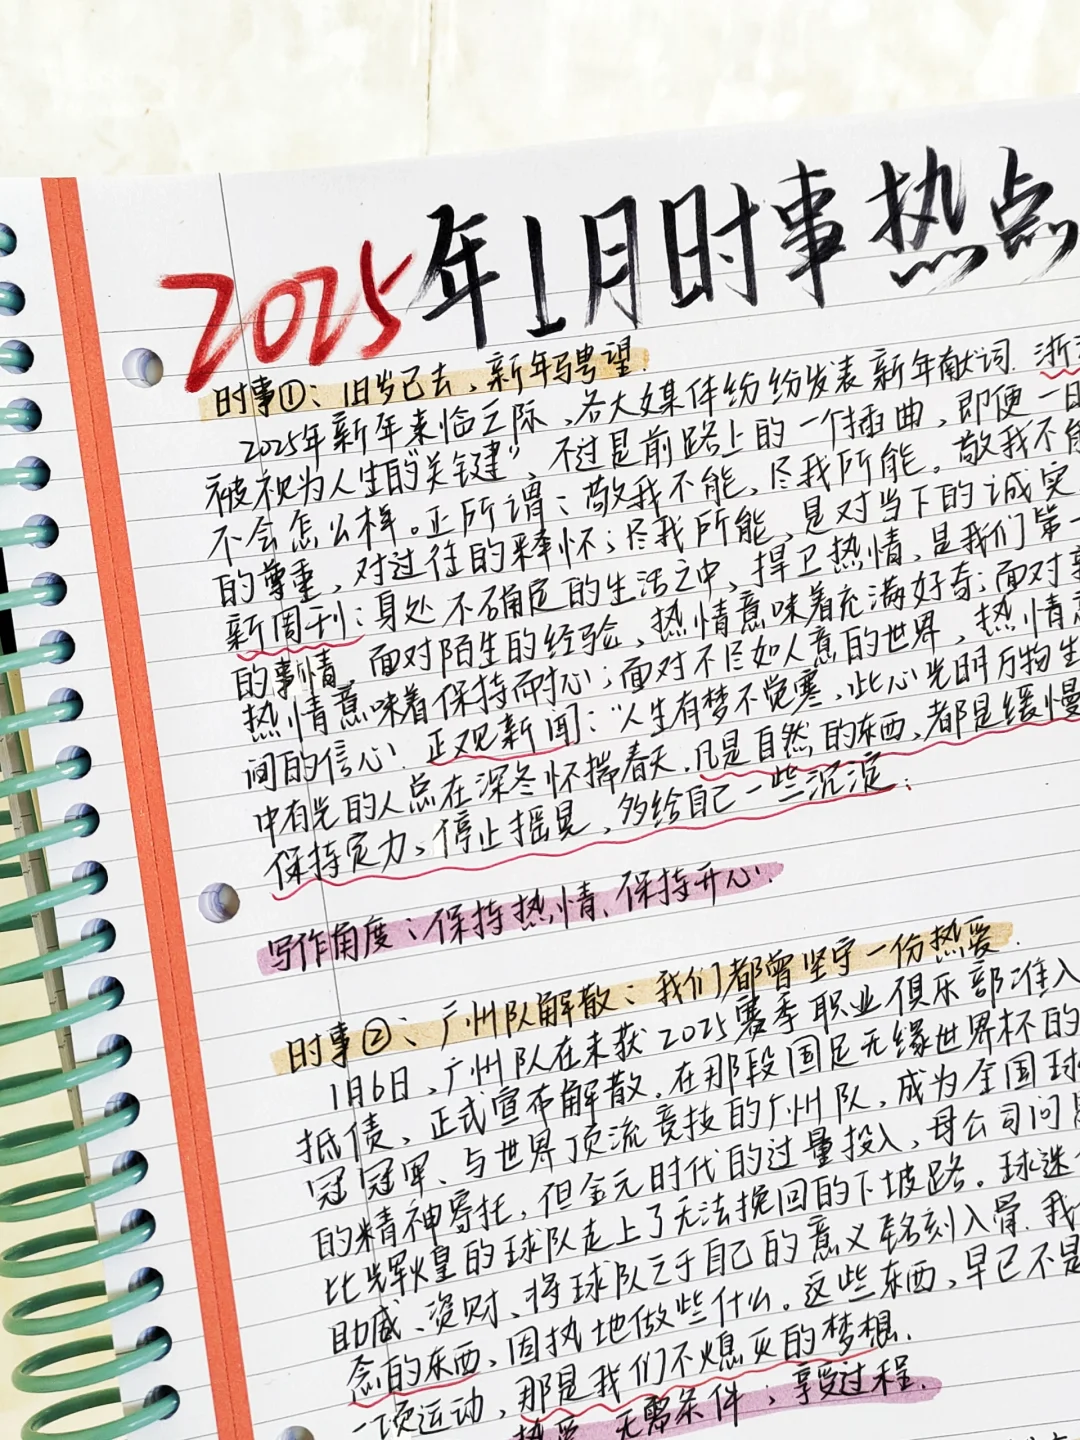 2025年1月时事热点
时事①：旧岁已去，新年骋望.
2025年新年来临之际，各大媒体纷纷发表新年献词. 浙
被视为人生的"关键"，不过是前路上的一个插曲，即便一
不会怎么样。正所谓：敬我不能，尽我所能。敬我不能
的尊重，对过往的释怀；尽我所能，是对当下的诚实
新周刊：身处不确定的生活之中，捍卫热情，是我们第一
的事情，面对陌生的经验，热情意味着充满好奇；面对
热情意味着保持耐心；面对不尽如人意的世界，热情
间的信心. 正观新闻："人生有梦不觉寒，此心光明万物生
中有光的人总在深冬怀揣春天. 凡是自然的东西，都是缓慢
保持定力、停止摇晃，多给自己一些沉淀；
写作角度：保持热情、保持开心.
时事②：广州队解散：我们都曾坚守一份热爱.
1月6日，广州队在未获2025赛季职业俱乐部准入
抵债，正式宣布解散. 在那段国足无缘世界杯的
冠冠军、与世界顶流竞技的广州队，成为全国球
的精神寄托，但金元时代的过量投入，母公司问
比辉煌的球队走上了无法挽回的下坡路。球迷
助威、资财、将球队之于自己的意义铭刻入骨. 我
念的东西，固执地做些什么。这些东西，早已不是
一项运动，那是我们不熄灭的梦想.
热爱 无需条件，享受过程.